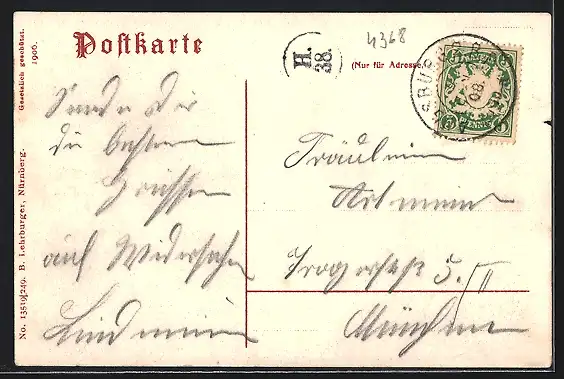 Gesetzlich geschützt.
1906.
No. 13519/249. B. Lehrburger, Nürnberg.
Postkarte
H.
38.
4368
(Nur für Adresse.)
BAYERN
5 PFENNIG 5
08.
Sende Dir
die besten
Grüsse
auf Wiedersehn
Fräulein
München